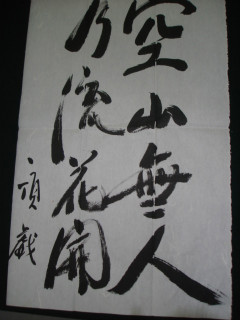 空山無人
水流花開
頌戲